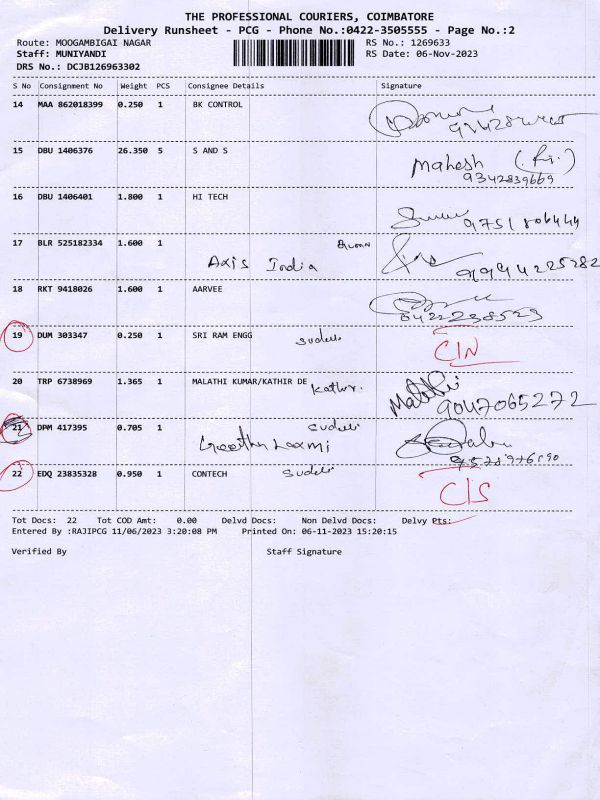 THE PROFESSIONAL COURIERS, COIMBATORE
Delivery Runsheet - PCG - Phone No.:0422-3505555 - Page No.:2
Route: MOOGAMBIGAI NAGAR RS No.: 1269633
Staff: MUNIYANDI RS Date: 06-Nov-2023
DRS No.: DCJB126963302
S No Consignment No Weight PCS Consignee Details Signature
14 MAA 862018399 0.250 1 BK CONTROL
15 DBU 1406376 26.350 5 S AND S
Mahesh
9342839669
16 DBU 1406401 1.800 1 HI TECH
17 BLR 525182334 1.600 1
Axis India
9994225282
18 RKT 9418026 1.600 1 AARVEE
04222238523
19 DUM 303347 0.250 1 SRI RAM ENGG
CIN
20 TRP 6738969 1.365 1 MALATHI KUMAR/KATHIR DE
Malathi
9047065272
21 DPM 417395 0.705 1
22 EDQ 23835328 0.950 1 CONTECH
CIS
Tot Docs: 22 Tot COD Amt: 0.00 Delvd Docs: Non Delvd Docs: Delvy Pts:
Entered By :RAJIPCG 11/06/2023 3:20:08 PM Printed On: 06-11-2023 15:20:15
Verified By Staff Signature